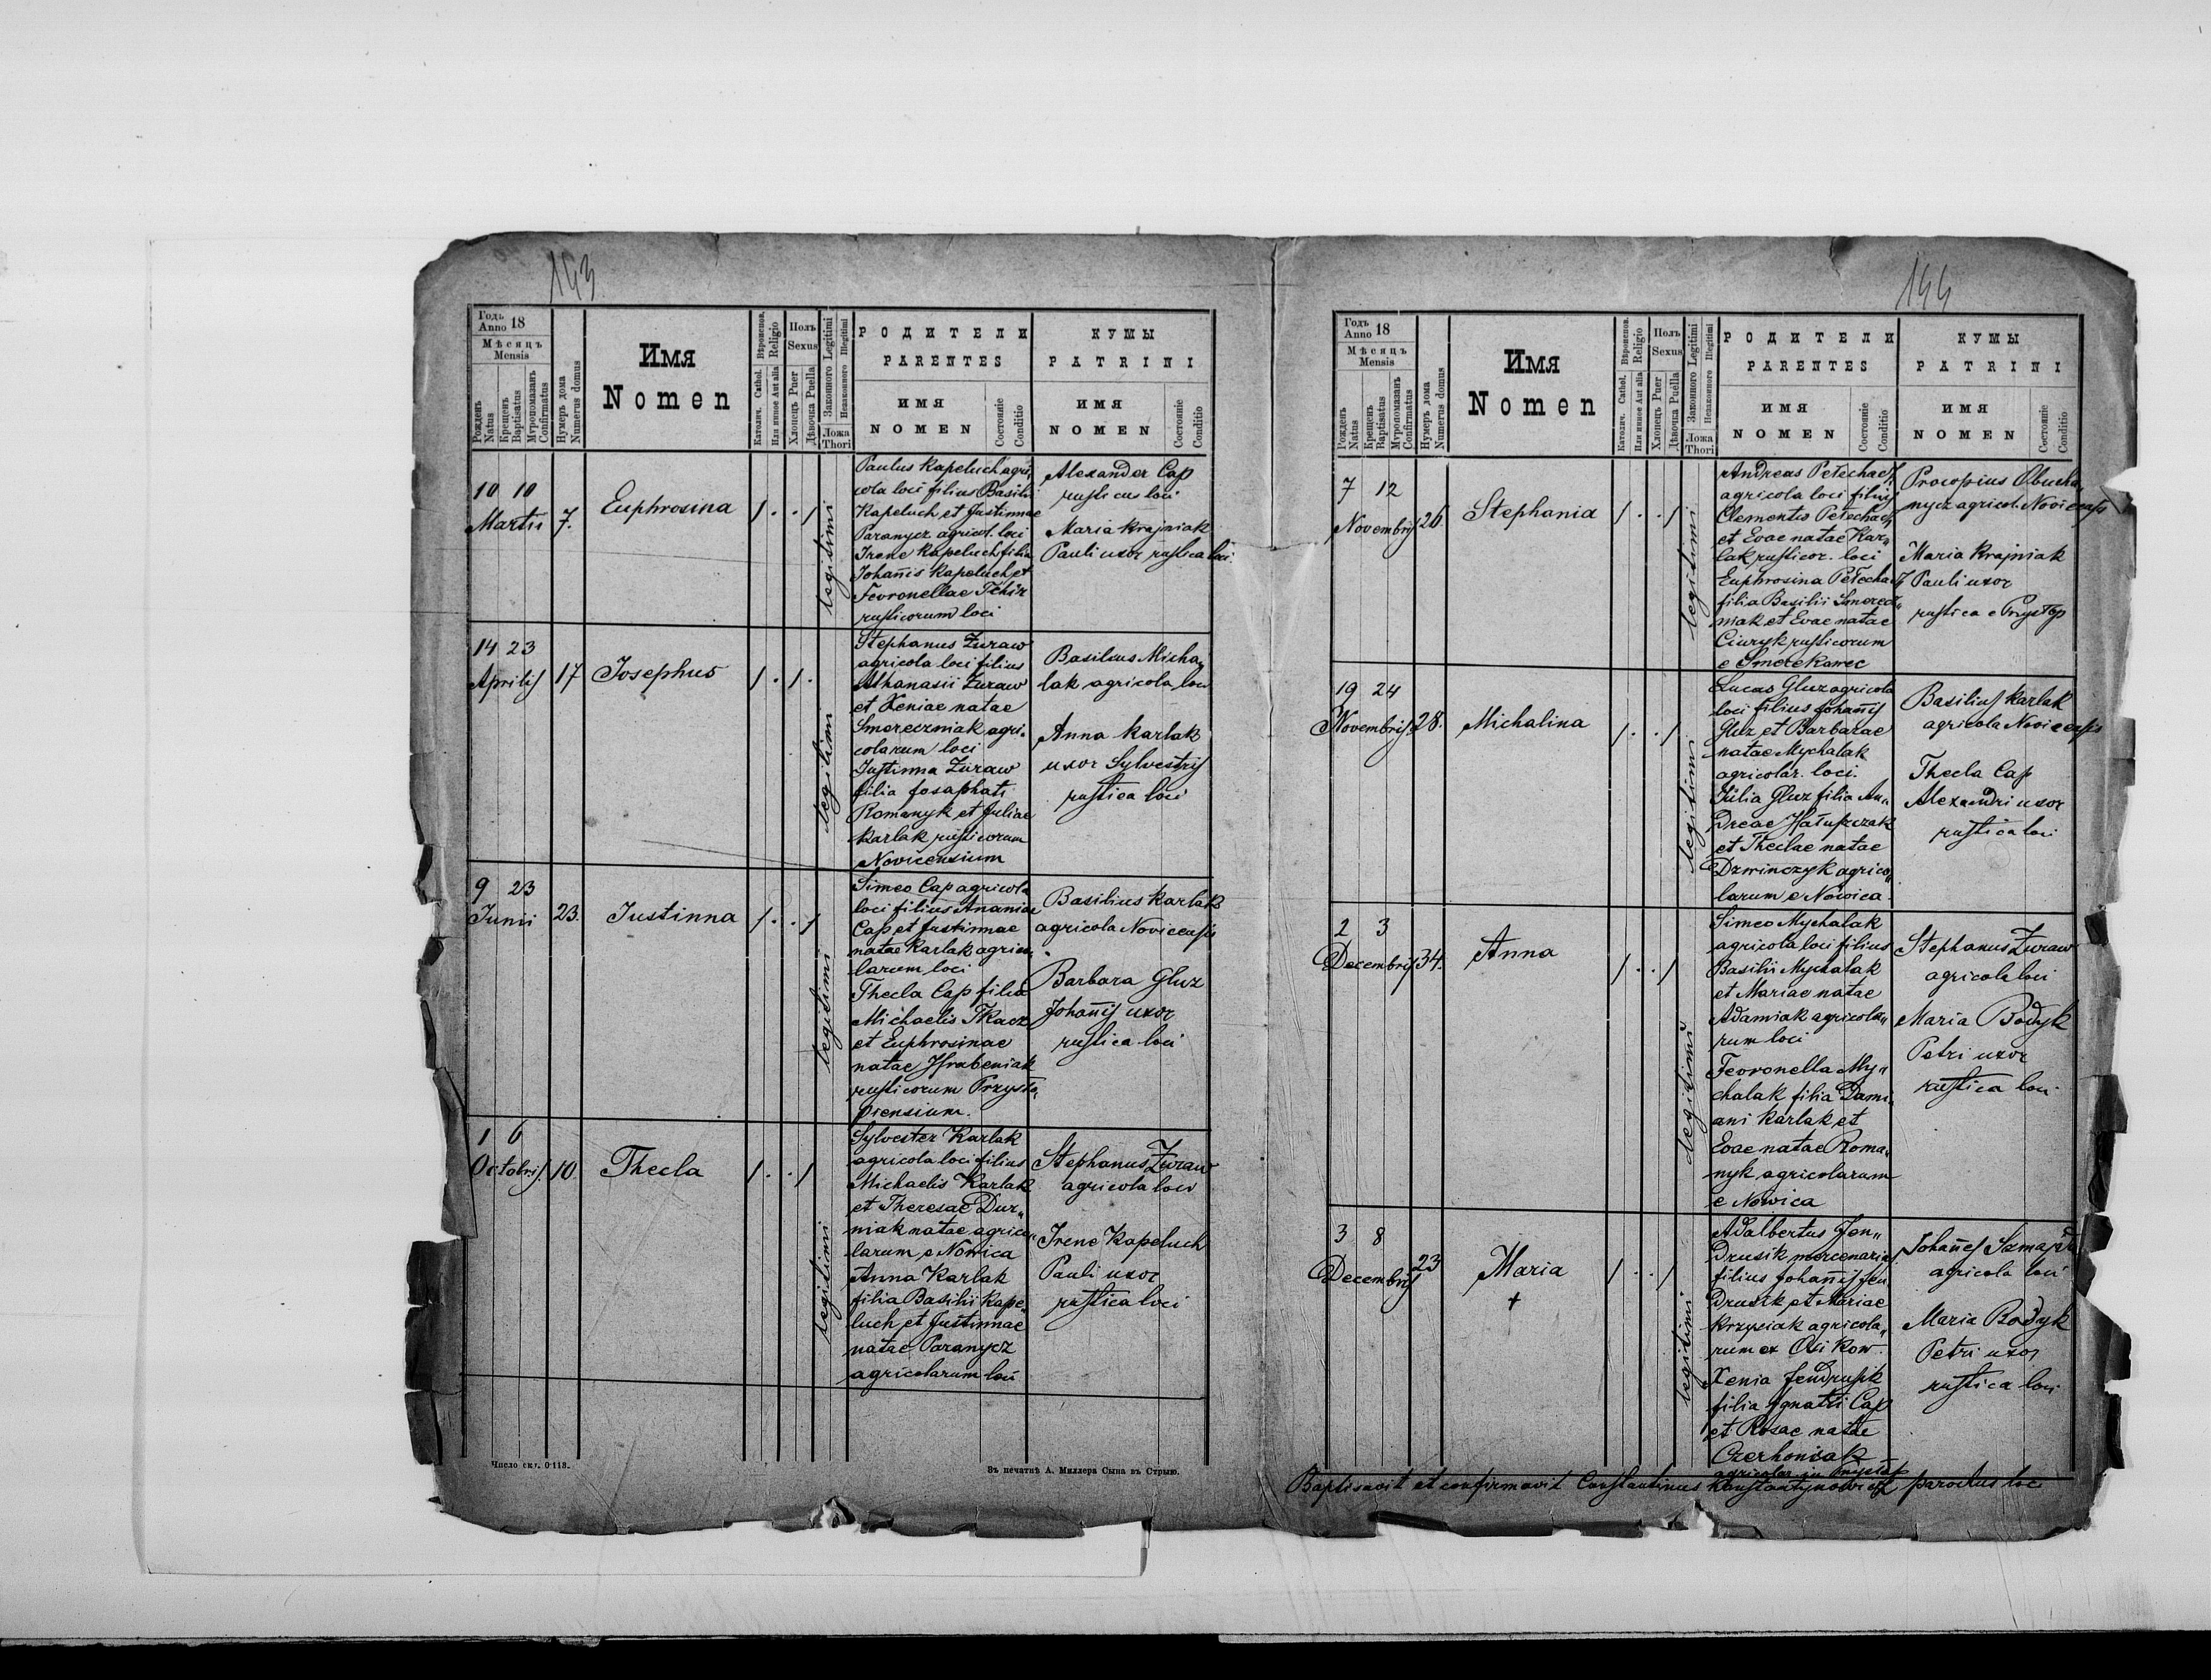 143
Годъ
Anno 18
Мѣсяцъ
Mensis
Рожденъ
Natus
Крещенъ
Baptisatus
Мѵропомазанъ
Confirmatus
Нумеръ дома
Numerus domus
Имя
Nomen
Вѣроиспов.
Religio
Католич. Cathol.
Или инное Aut alia
Полъ
Sexus
Хлопецъ Puer
Дѣвочка Puella
Законного Legitimi
Незаконного Illegitimi
Ложа
Thori
РОДИТЕЛИ
PARENTES
ИМЯ
NOMEN
Состоянїе
Conditio
КУМЫ
PATRINI
ИМЯ
NOMEN
Состоянїе
Conditio
10 10
Martii 7.
Euphrosina
/ . . /
legitimi
Paulus Kapeluch agri,
cola loci filius Basilii
Kapeluch, et Justinnae
Paranycz agricol. loci
Irene Kapeluch filia
Johañis Kapeluch et
Fevronellae Tchir
rusticorum loci
Alexander Cap
rusticus loci
Maria Krajniak
Pauli uxor rustica loci.
14 23
Aprilis 17
Josephus
/ . / .
legitimi
Stephanus Żuraw
agricola loci filius
Athanasii Żuraw
et Xeniae natae
Smereczniak agri,
colarum loci
Justinna Żuraw
filia Josaphati
Romanyk et Juliae
Karlak rusticorum
Novicensium
Basilius Micha,,
lak agricola loci
Anna Karlak
uxor Sylvestris
rustica loci
9 23
Junii 23.
Justinna
/ . . /
legitimi
Simeo Cap agricola
loci filius Ananiae
Cap et Justinnae
natae Karlak agrico,
larum loci
Thecla Cap filia
Michaelis Tkacz
et Euphrosinae
natae Hrabeniak
rusticorum Przysto,,
piensium.
Basilius Karlak
agricola Noviceasis
Barbara Gluz
Johañis uxor
rustica loci
1 6
Octobris. 10.
Thecla
/ . . /
legitimi
Sylvester Karlak
agricola loci filius
Michaelis Karlak
et Theresae Dur,,
niak natae agrico,,
larum e Nowica
Anna Karlak
filia Basilii Kape,
luch et Justinnae
natae Paranycz
agricolarum loci
Stephanus Żuraw
agricola loci
Irene Kapeluch
Pauli uxor
rustica loci
Число скл. 0·113.
Зъ печатнѣ А. Миллера Сына въ Стрыю.
144
Годъ
Anno 18
Мѣсяцъ
Mensis
Рожденъ
Natus
Крещенъ
Baptisatus
Мѵропомазанъ
Confirmatus
Нумеръ дома
Numerus domus
Имя
Nomen
Вѣроиспов.
Religio
Католич. Cathol.
Или инное Aut alia
Полъ
Sexus
Хлопецъ Puer
Дѣвочка Puella
Законного Legitimi
Незаконного Illegitimi
Ложа
Thori
РОДИТЕЛИ
PARENTES
ИМЯ
NOMEN
Состоянїе
Conditio
КУМЫ
PATRINI
ИМЯ
NOMEN
Состоянїе
Conditio
7 12
Novembris 26.
Stephania
/ . . /
legitimi
Andreas Petechacz
agricola loci filius
Clementis Petechacz
et Evae natae Kar,,
lak rusticor. loci
Euphrosina Petechacz
filia Basilii Smerecz,,
niak et Evae natae
Ciuryk rusticorum
e Smerekowec
Procopius Obucha,,
nycz agricol. Noviceasis
Maria Krajniak
Pauli uxor
rustica e Przystop
19 24
Novembris 28.
Michalina
/ . . /
legitimi
Lucas Gluz agricola
loci filius Johañis
Gluz et Barbarae
natae Mychalak
agricolar. loci.
Julia Gluz filia An,,
dreae Hatuszczak
et Theclae natae
Dzwinczyk agrico,,
larum e Nowica
Basilius Karlak
agricola Noviceasis
Thecla Cap
Alexandri uxor
rustica loci
2 3
Decembris 34.
Anna
/ . . /
legitimi
Simeo Mychalak
agricola loci filius
Basilii Mychalak
et Mariae natae
Adamiak agricola,,
rum loci
Fevronella My,,
chalak filia Dami,
ani Karlak et
Evae natae Roma,
nyk agricolarum
e Nowica
Stephanus Żuraw
agricola loci
Maria Bodyk
Petri uxor
rustica loci
3 8
Decembris 23
Maria
+
/ . . /
legitimi
Adalbertus Jen,,
drusik mercenarius
filius Johañis Jen
drusik et Mariae
Krzysiak agricola,,
rum ex
Xenia Jendrusik
filia Ignatii Cap
et Rosae natae
Czerhoniak
agricolar. in
Johañes
agricola loci
Maria Bodyk
Petri uxor
rustica loci
Baptisavit et confirmavit Constantinus Konstantynowicz parochus loci